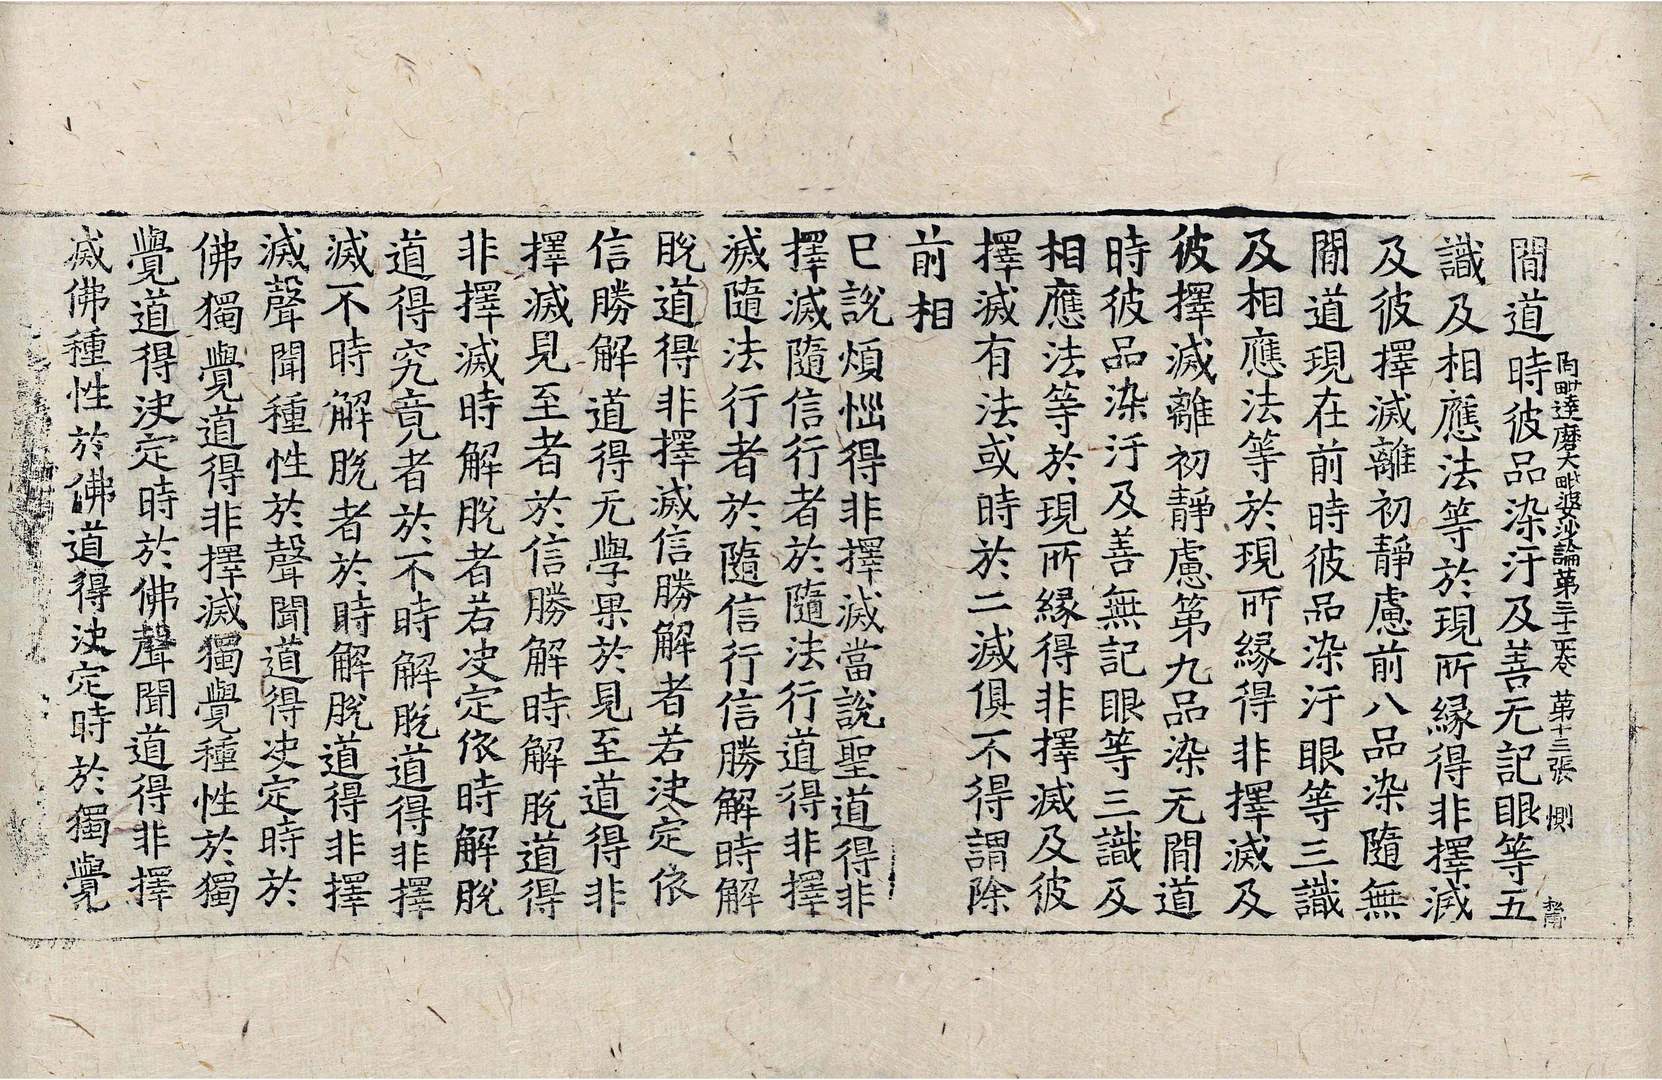 阿毗達磨大毗婆沙論第三十二卷 第十三張 惻
間道時彼品染汙及善无記眼等五
識及相應法等於現所緣得非擇滅
及彼擇滅離初靜慮前八品染隨無
間道現在前時彼品染汙眼等三識
及相應法等於現所緣得非擇滅及
彼擇滅離初靜慮第九品染无間道
時彼品染汙及善無記眼等三識及
相應法等於現所緣得非擇滅及彼
擇滅有法或時於二滅俱不得謂除
前相
已說煩惱得非擇滅當說聖道得非
擇滅隨信行者於隨法行道得非擇
滅隨法行者於隨信行信勝解時解
脫道得非擇滅信勝解者若決定依
信勝解道得无學果於見至道得非
擇滅見至者於信勝解時解脫道得
非擇滅時解脫者若決定依時解脫
道得究竟者於不時解脫道得非擇
滅不時解脫者於時解脫道得非擇
滅聲聞種性於聲聞道得決定時於
佛獨覺道得非擇滅獨覺種性於獨
覺道得決定時於佛聲聞道得非擇
滅佛種性於佛道得決定時於獨覺